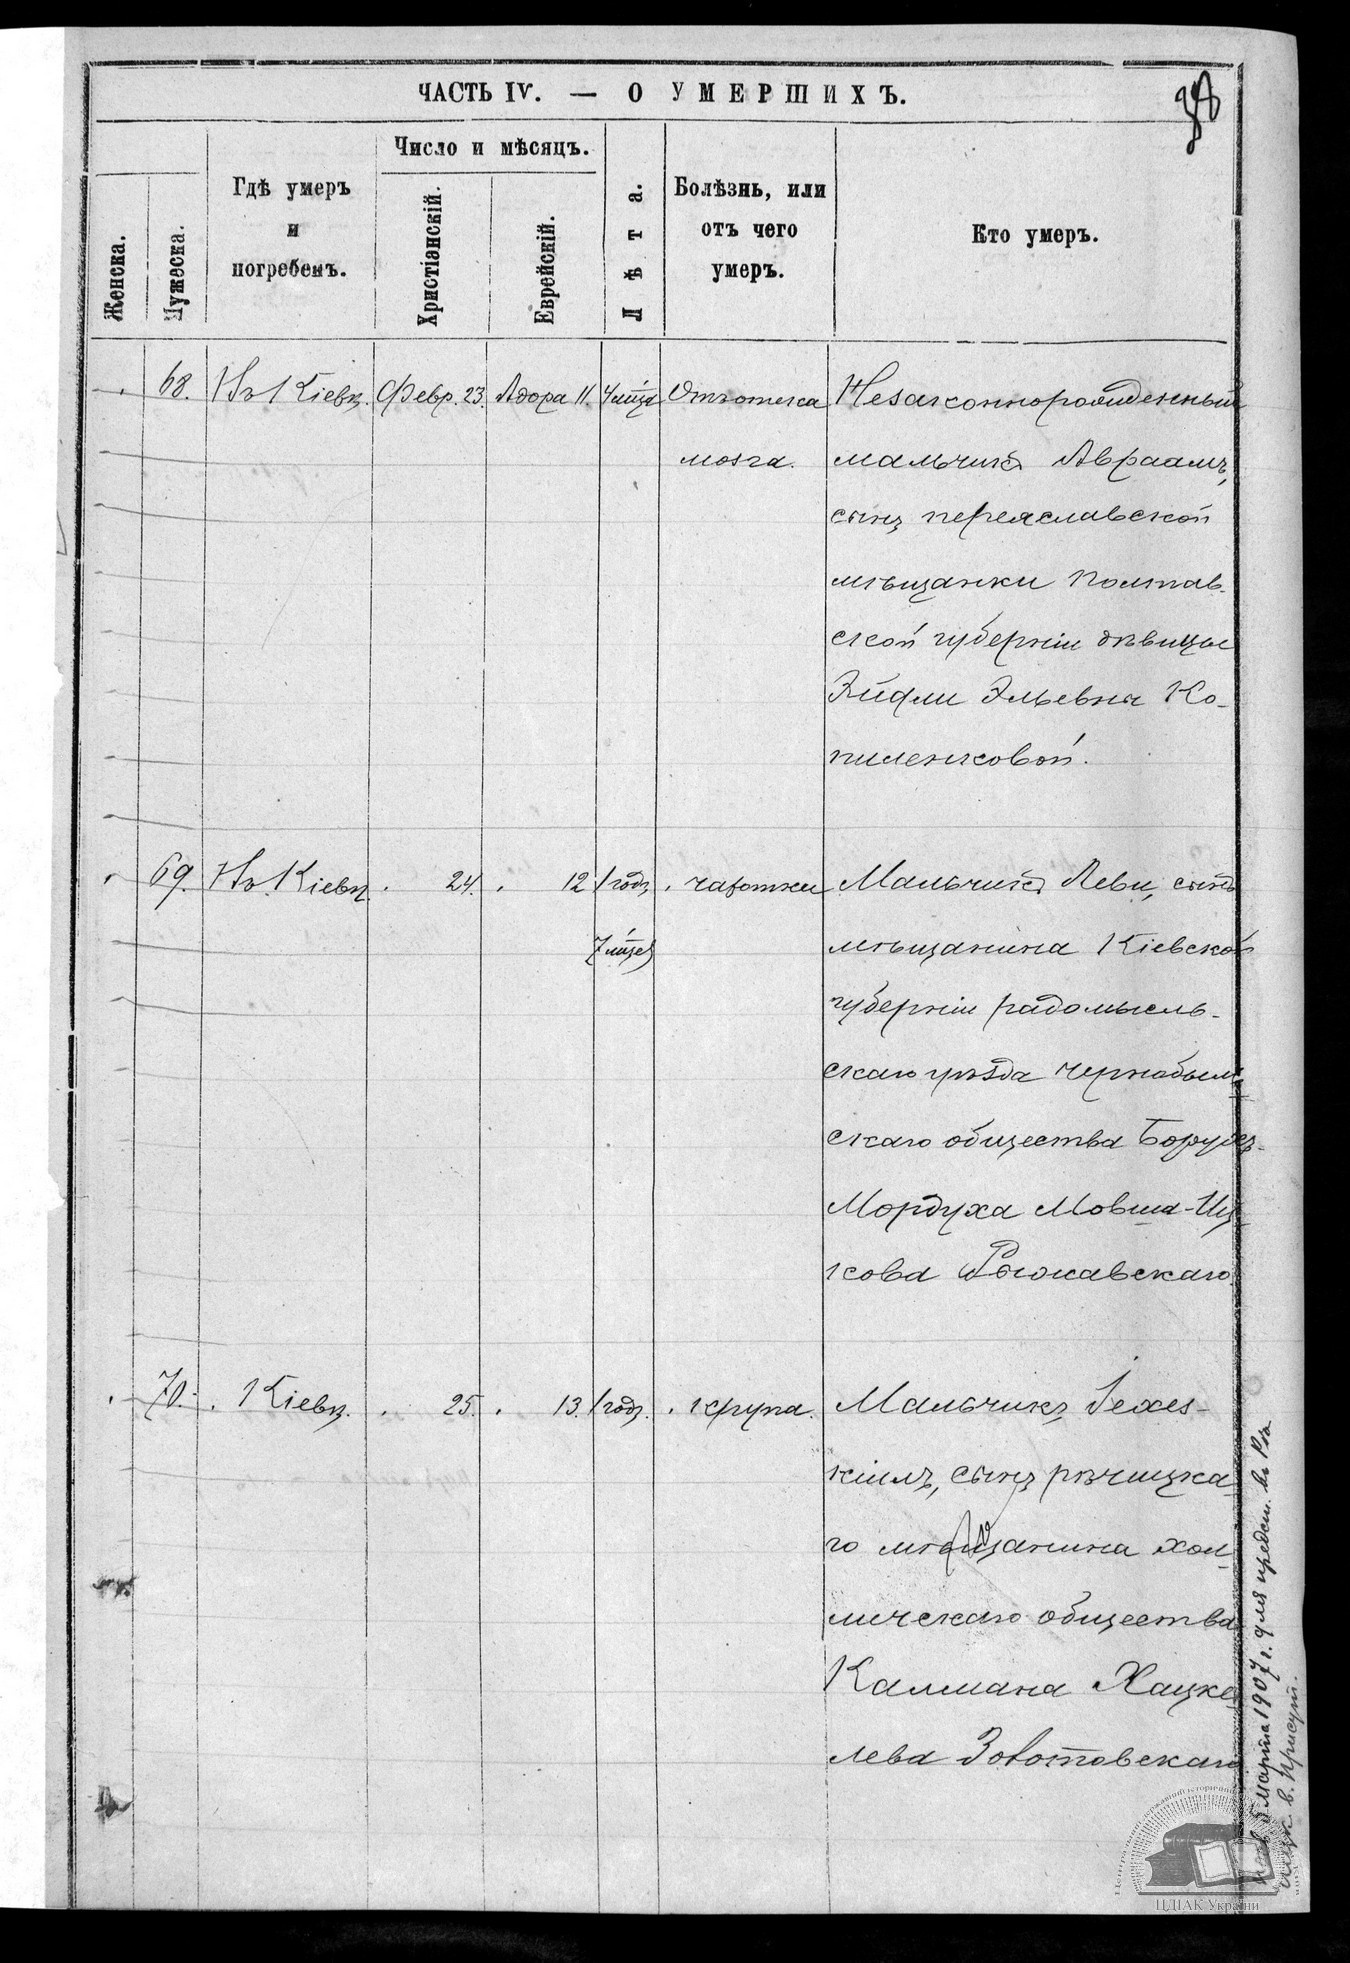 ЧАСТЬ IV. — О УМЕРШИХЪ.
Женска.
Мужеска.
Гдѣ умеръ
и
погребенъ.
Число и мѣсяцъ.
Христіанскій.
Еврейскій.
Лѣта.
Болѣзнь, или
отъ чего
умеръ.
Кто умеръ.
68. Въ Кіевѣ. Февр. 23. Адора 11. 4 мѣсца Отъ отека Незаконнорожденный
мозга. мальчикъ Авраамъ,
сынъ переяславской
мѣщанки Полтав-
ской губерніи дѣвицы
Зиѳли Эльевны Ко-
пиленковой.
69. Въ Кіевѣ. 24. 12 1 годъ чахотки Мальчикъ Леви, сынъ
7 мѣсцев мѣщанина Кіевской
губерніи радомысль-
скаго уѣзда чернобыль-
скаго общества Борухъ-
Мордуха Мовша-Иц-
кова Рыжавскаго.
70. Кіевѣ. 25. 13. 1 годъ. крупа. Мальчикъ Іехез-
кіилъ, сынъ рѣчицка-
го мѣщанина хол-
мичскаго общества
Калмана Хацке-
лева Золотовскаго
5 марта 1907 г. для предст. въ
в. Присут.
ЦДІАК України